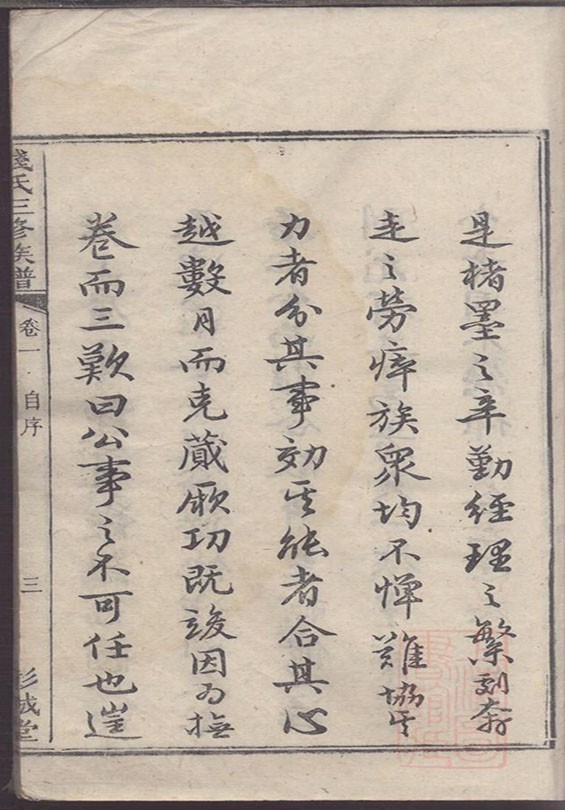 是楮墨之辛勤經理之繁劇奔
走之勞瘁族衆均不憚難協其
力者分其事効其能者合其心
越數月而克蕆厥功既竣因為撫
卷而三歎曰公事之不可任也豈
錢氏三修族譜
卷一
自序
三
彭城堂